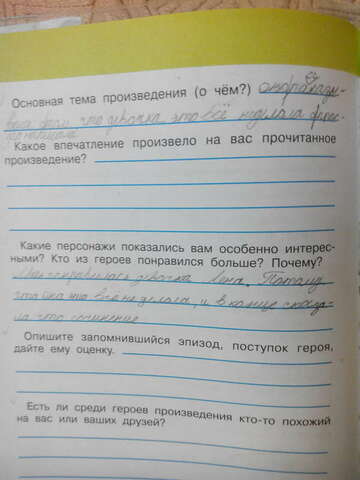 Основная тема произведения (о чём?)
что девочка это всё
Какое впечатление произвело на вас прочитанное
произведение?
Какие персонажи показались вам особенно интерес-
ными? Кто из героев понравился больше? Почему?
Мне понравилась девочка Лена. Потому,
что не делала, и в конце
это сочинение
Опишите запомнившийся эпизод, поступок героя,
дайте ему оценку.
Есть ли среди героев произведения кто-то похожий
на вас или ваших друзей?